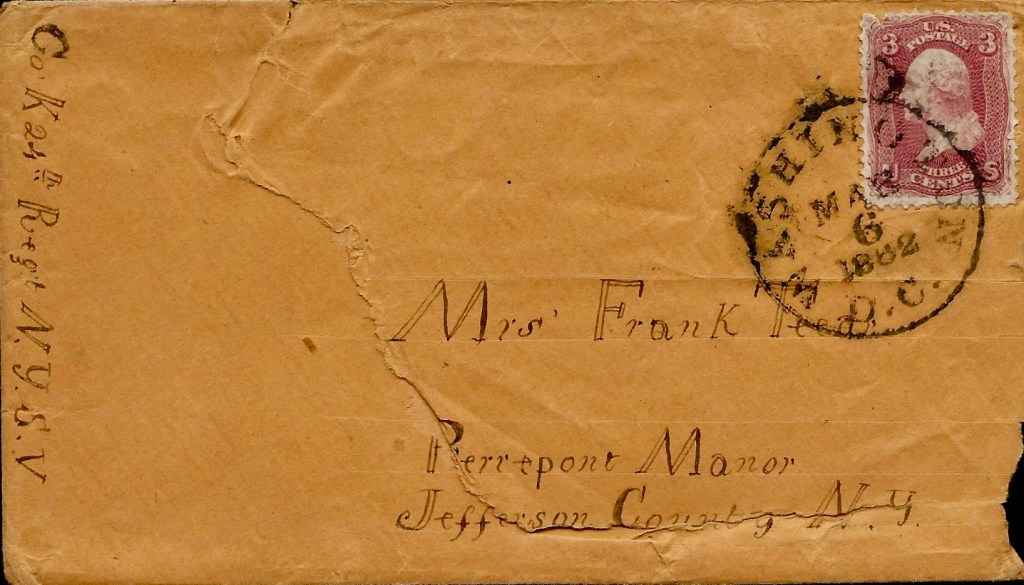 Co K 24th Regt N.Y.S.V
3 U.S. 3
POSTAGE
U THREE S
CENTS
WASHINGTON
MAR
6
1862
D.C.
Mrs' Frank Teed
Perrepont Manor
Jefferson County N.Y.